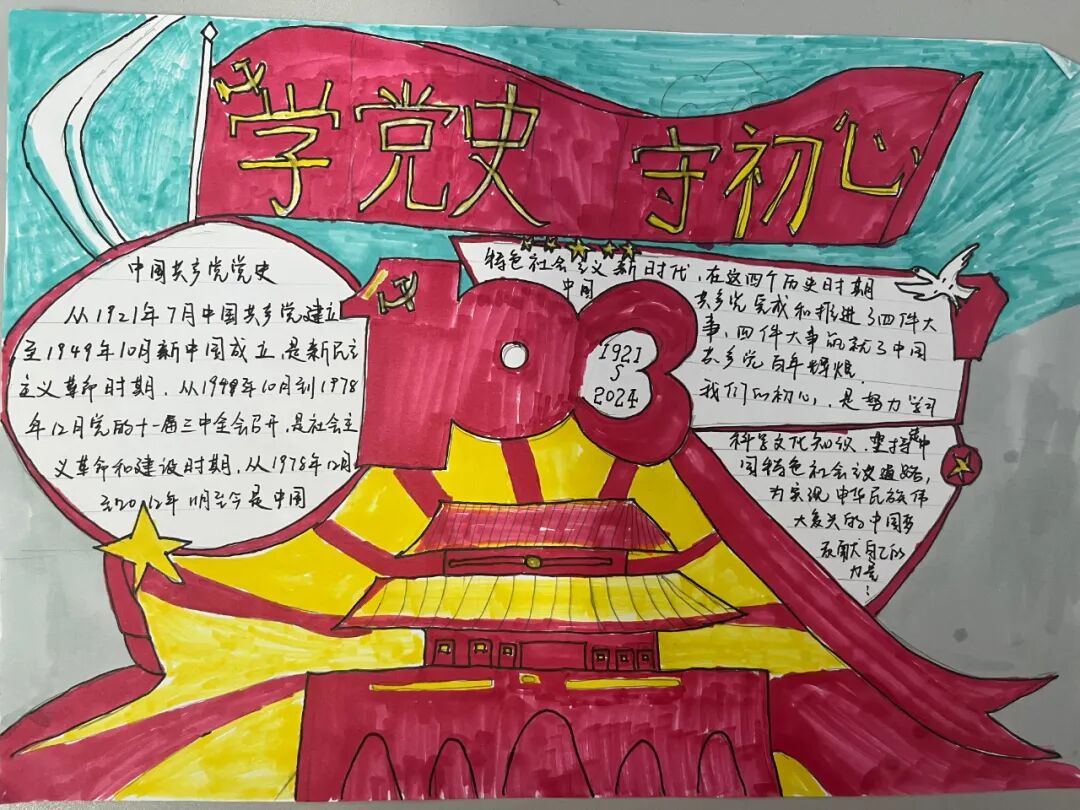 学党史 守初心
中国共产党党史
从1921年7月中国共产党建立
至1949年10月新中国成立,是新民主
主义革命时期,从1949年10月到1978
年12月党的十一届三中全会召开,是社会主
义革命和建设时期,从1978年12月
至2012年11月至今是中国
103
1921
2024
特色社会主义新时代,在这四个历史时期
中国
共产党完成和推进了四件大
事,四件大事铸就了中国
共产党百年辉煌.
我们的初心,是努力学习
科学文化知识,坚持走中
国特色社会主义道路,
为实现中华民族伟
大复兴的中国梦
贡献自己的
力量!